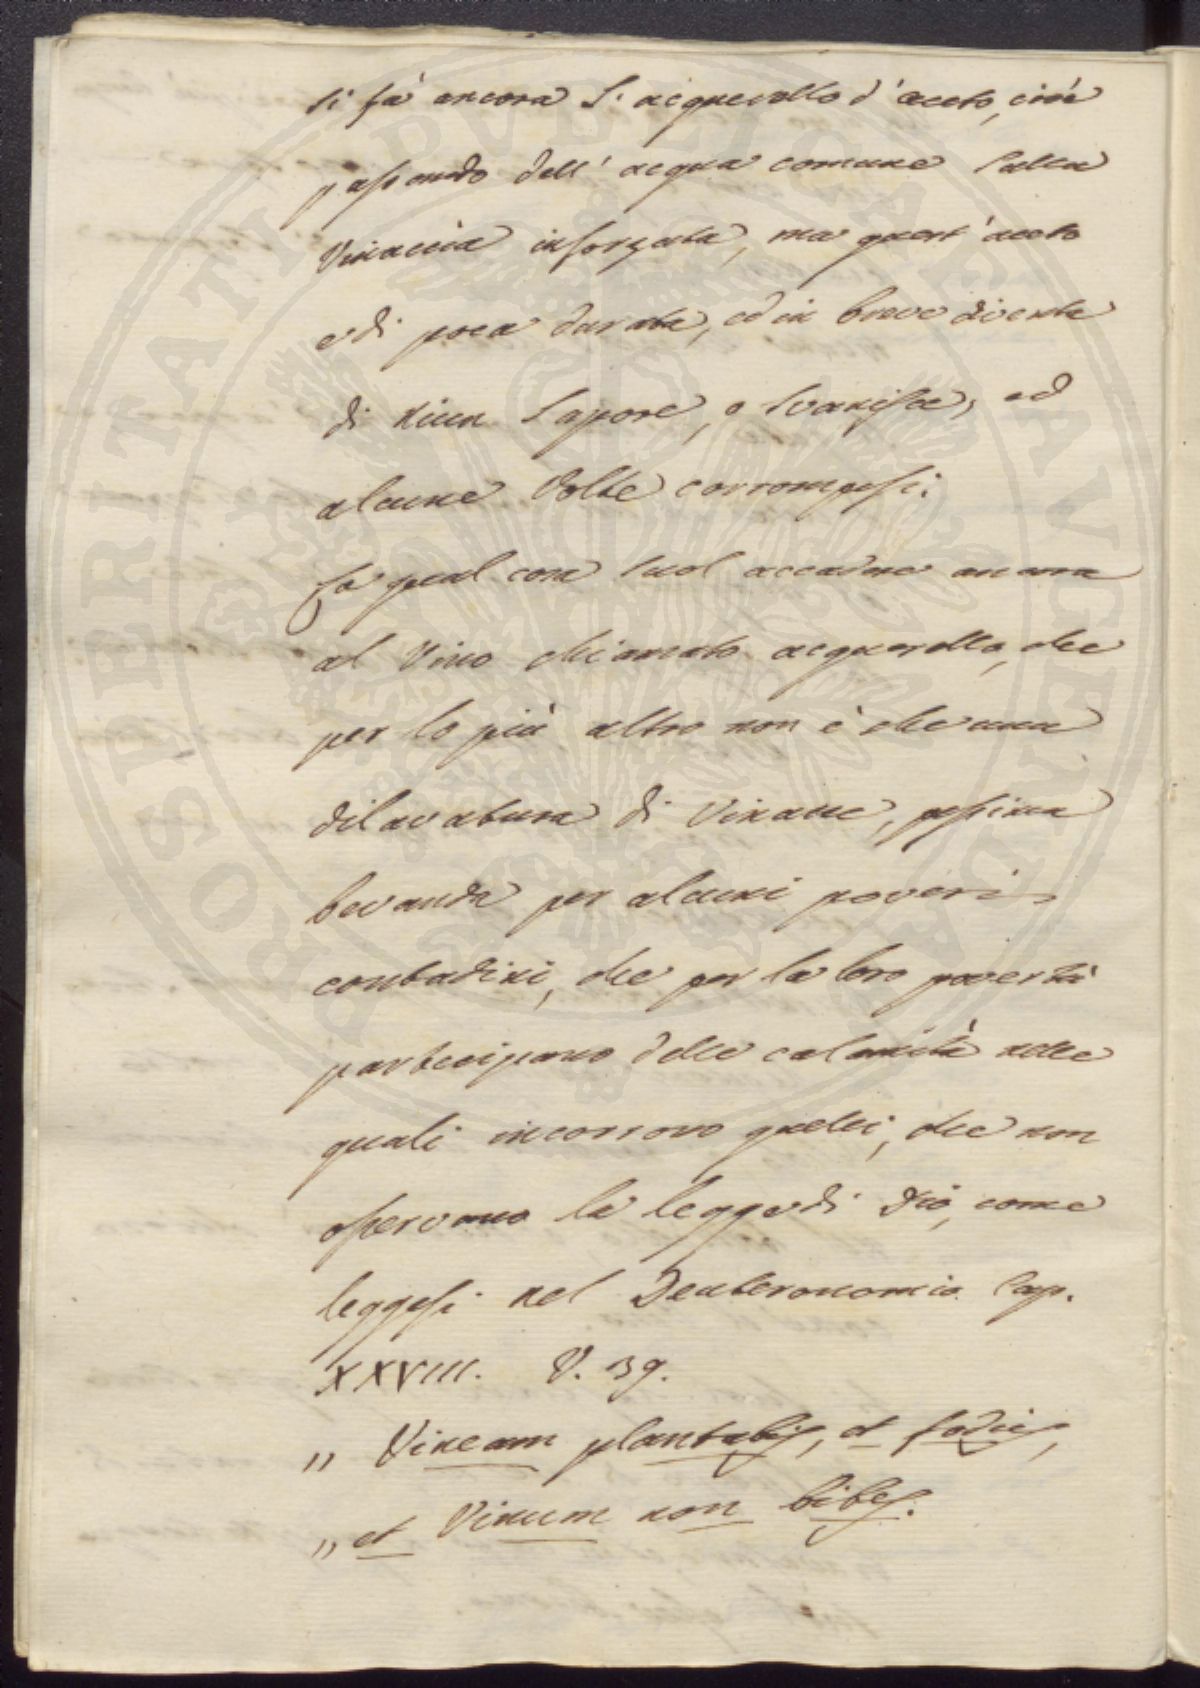 si fà ancora l'acquerello d'aceto, cioè
passando dell'acqua comune sulla
Vinaccia inforzata, ma quest'aceto
è di poca durata, ed in breve diventa
di niun sapore, o svanisce, ed
alcune Volte corrompesi.
La qual cosa suol accadere ancora
al Vino chiamato acquerello, che
per lo più altro non è che una
dilavatura di Vinacce, pessima
bevanda per alcuni poveri
contadini, che per la loro povertà
partecipano delle calamità nelle
quali incorrono quelli, che non
osservano la legge di Dio, come
leggesi nel Deuteronomio Cap.
XXVIII. V. 39.
„ Vineam plantabis, et fodies,
„ et Vinum non bibes.
PROSPERITATI PVBLICAE AVGENDAE